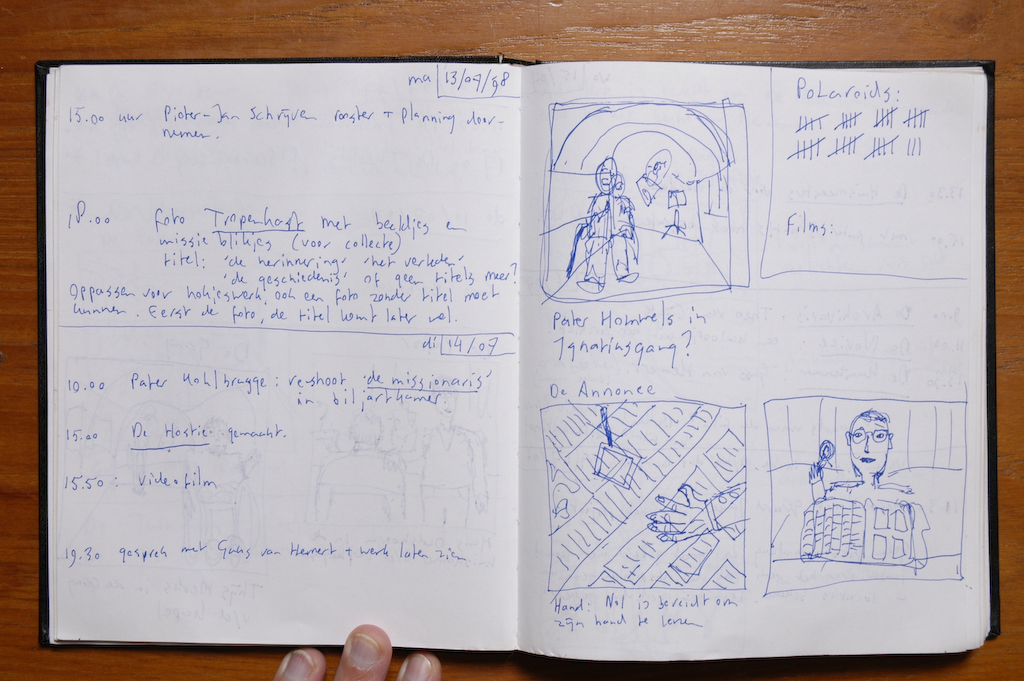 ma 13/07/98
15.00 uur Pieter-Jan Schrijven rooster + planning door-
nemen.
18.00 foto Tropenhost met beeldjes en
missie blikjes (voor collecte)
titel: 'de herinnering' 'het verleden'
'de geschiedenis' of geen titels meer?
Oppassen voor hokjeswerk, ook een foto zonder titel moet
kunnen. Eerst de foto, de titel komt later wel.
di 14/07
10.00 Pater Kohlbrugge: reshoot 'de missionaris'
in biljartkamer.
15.00 De Hostie gemaakt.
15.50: videofilm
19.30 gesprek met van + werk laten zien
Polaroids:
Films:
Pater Hommels in
Ignatiusgang?
De Annonce
Hand: Nol is bereidt om
zijn hand te lenen